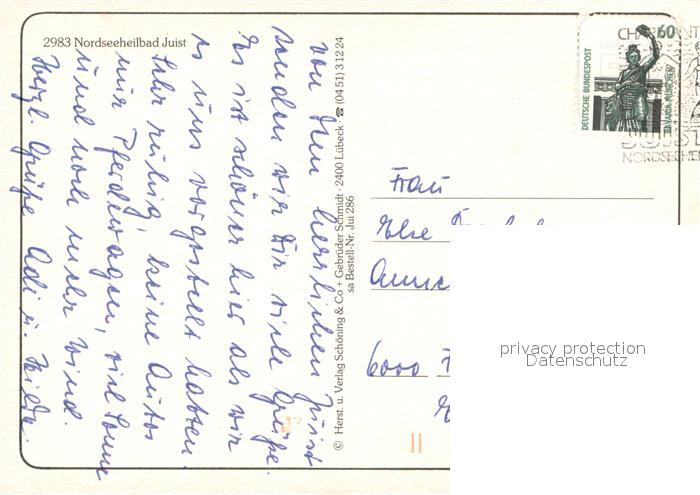 2983 Nordseeheilbad Juist
von dem herrlichen Juist
senden wir Dir viele Grüße.
Es ist schöner hier als wir
es uns vorgestellt hatten.
Sehr ruhig, keine Autos
nur Pferdewagen, viel Sonne
und noch mehr Wind.
Herzl. Grüße Adi u.
© Herst. u. Verlag Schöning & Co + Gebrüder Schmidt · 2400 Lübeck · ☎ (04 51) 3 12 24
sa Bestell-Nr. Jui 286
DEUTSCHE BUNDESPOST
60
BAVARIA MÜNCHEN
CHARMANT
JUIST
NORDSEEHEI
Frau
Else
6000
privacy protection
Datenschutz